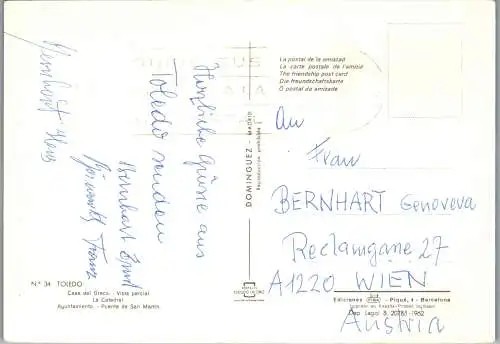 Herzliche Grüsse aus
Toledo senden
Bernhart Ernst
Franz
Bernhart Hans
La postal de la amistad
La carte postale de l'amitié
The friendship post card
Die freundschaftskarte
O postal da amizade
DOMINGUEZ - MADRID
Reproducción prohibida
An
Frau
BERNHART Genoveva
Reclamgasse 27
A1220 WIEN
Austria
N.º 34 TOLEDO
Casa del Greco. - Vista parcial
La Catedral
Ayuntamiento. - Puente de San Martín.
Ediciones - Piqué, 4 - Barcelona
Dep. Legal B. 20783-1962